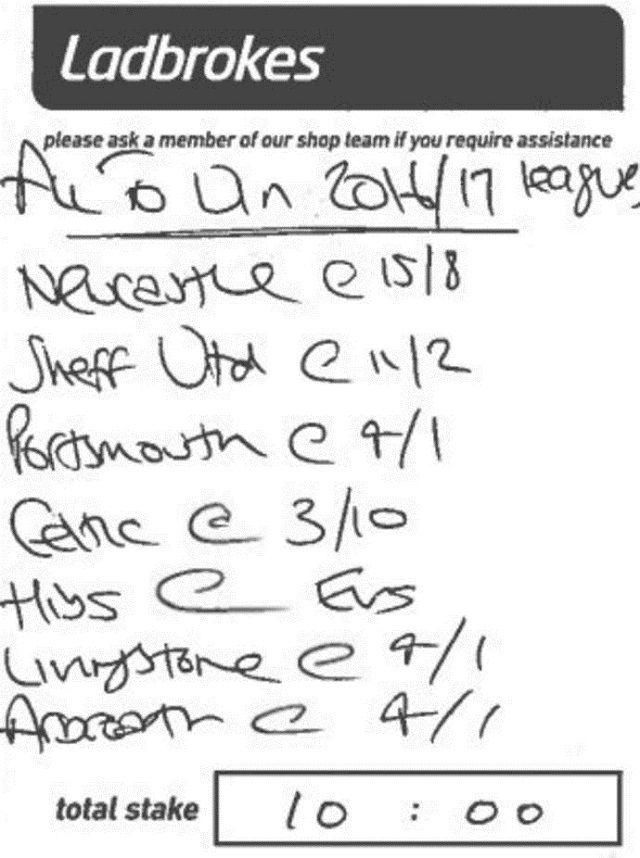 Ladbrokes
please ask a member of our shop team if you require assistance
All to Win 2016/17 league
Newcastle @ 15/8
Sheff Utd @ 11/2
Portsmouth @ 4/1
Celtic @ 3/10
Hibs @ Evs
Livingstone @ 4/1
Arbroath @ 4/1
total stake 10 : 00